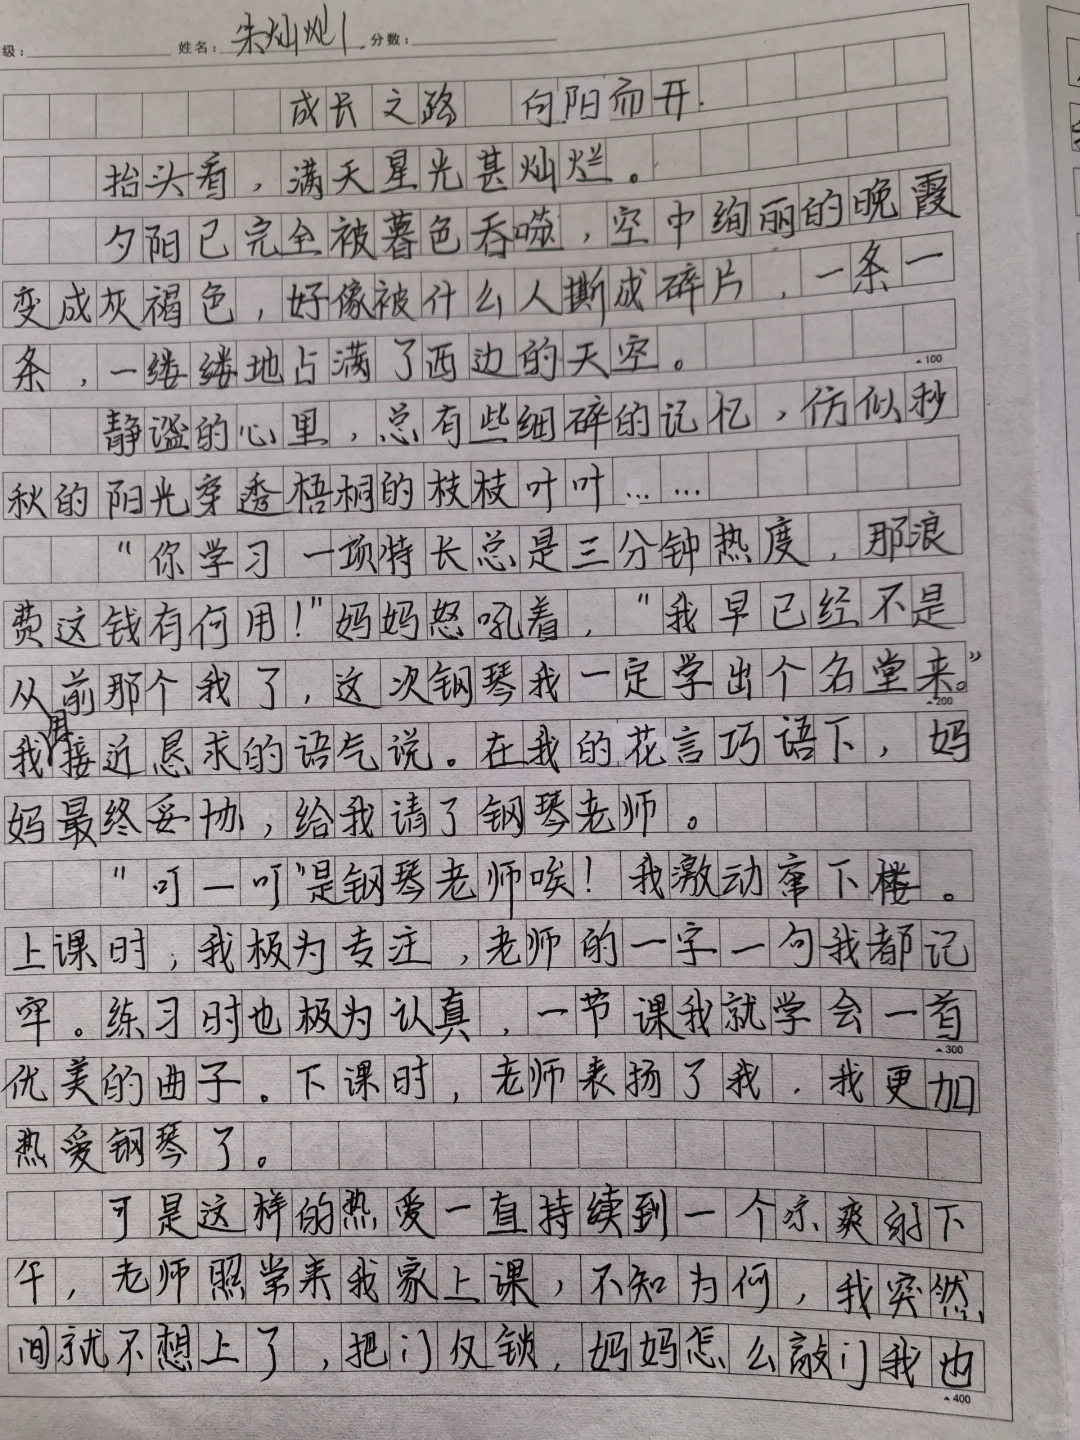 级： 姓名：朱灿灿 分数：
成长之路 向阳而开.
抬头看，满天星光甚灿烂。
夕阳已完全被暮色吞噬，空中绚丽的晚霞
变成灰褐色，好像被什么人撕成碎片，一条一
条，一缕缕地占满了西边的天空。
▲100
静谧的心里，总有些细碎的记忆，仿似秒
秋的阳光穿透梧桐的枝枝叶叶……
“你学习一项特长总是三分钟热度，那浪
费这钱有何用！”妈妈怒吼着，“我早已经不是
从前那个我了，这次钢琴我一定学出个名堂来。”
▲200
我用接近恳求的语气说。在我的花言巧语下，妈
妈最终妥协，给我请了钢琴老师。
“叮一叮”是钢琴老师唉！我激动奔下楼。
上课时，我极为专注，老师的一字一句我都记
牢。练习时也极为认真，一节课我就学会一首
▲300
优美的曲子。下课时，老师表扬了我，我更加
热爱钢琴了。
可是这样的热爱一直持续到一个凉爽的下
午，老师照常来我家上课，不知为何，我突然
间就不想上了，把门反锁，妈妈怎么敲门我也
▲400